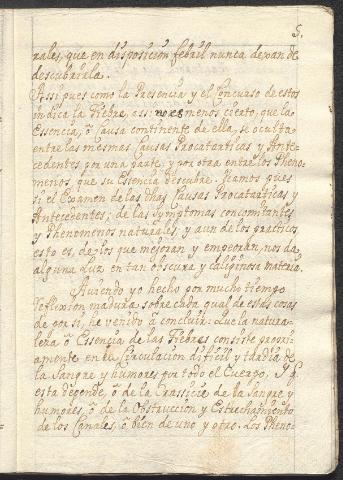 5.
rales, que en disposicion febril nunca dexan de
descubrirla.
Assi pues como la Presencia y el Concurso de estos
indica la Fiebre, assi no es menos cierto, que la
Essencia, ò Causa continente de ella, se oculta
entre las mesmas Causas Procatarticas y Ante-
cedentes por una parte, y por otra entre los Pheno-
menos, que su Essencia descubre. Veamos pues
si el Examen de las dhas Causas Procatarticas y
Antecedentes; de las Symptomas concomitantes
y Phenomenos naturales; y aun de los practicos,
esto es, de los que mejoran y empeoran, nos da
alguna luz en tan obscura y caliginosa materia.
Aviendo yo hecho por mucho tiempo
reflexion madura sobre cada qual de estas cosas
de por sì, he venido à concluir: Que la natura-
leza, ò Essencia de las Fiebres consiste propri-
amente en la Circulacion dificil y tardia de
la Sangre y humores por todo el Cuerpo, Y q̃
esta depende, ò de la Crassicie de la Sangre y
humores, ò de la Obstruccion y Estrechamiento
de los Canales, ò bien de uno y otro. Los Pheno-